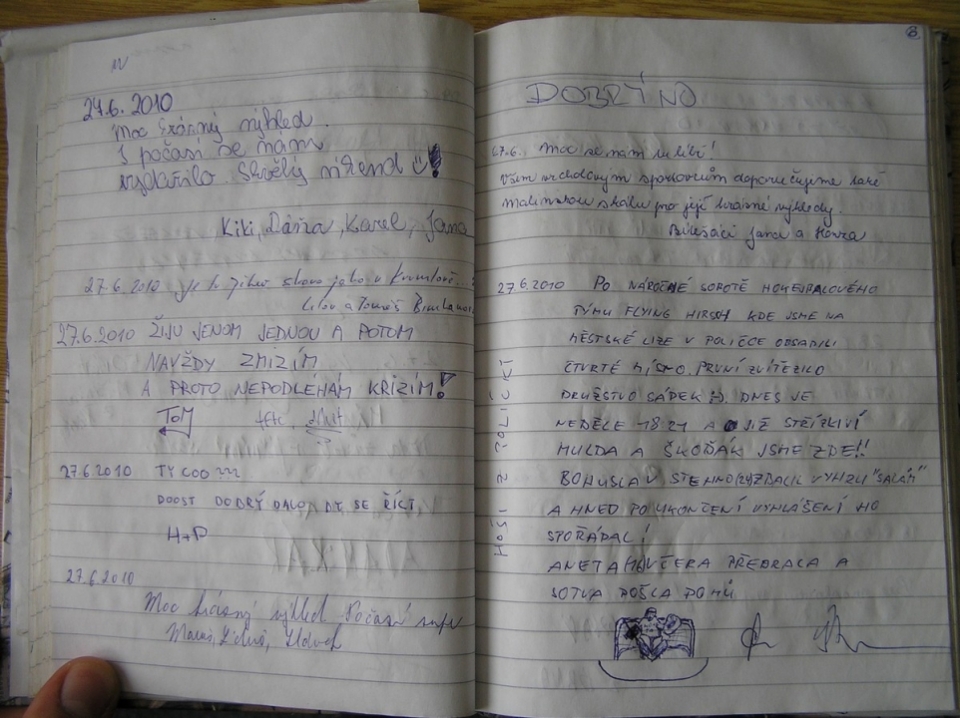 24.6.2010
Moc krásný výhled.
I počasí se nám
vydařilo. Skvělý víkend
Kiki, Dáša, Karel, Jana
27.6.2010 Je to
27.6.2010 ŽIJU JENOM JEDNOU A POTOM
NAVŽDY ZMIZÍM
A PROTO NEPODLEHÁM KRIZÍM!
TOM
27.6.2010 TY COO ???
DOOST DOBRÝ DALO BY SE ŘÍCT,
H+P
27.6.2010
Moc krásný výhled Počasí super
8
DOBRÝ NO
27.6. Moc se nám tu líbí!
Všem vrcholovým sportovcům doporučujeme také
skálu pro její krásné výhledy.
Jana a Honza
27.6.2010 PO NÁROČNÉ SOBOTĚ HOKEJBALOVÉHO
TÝMU FLYING HIRSCH KDE JSME NA
MĚSTSKÉ LIZE V POLIČCE OBSADILI
ČTVRTÉ MÍSTO. PRVNÍ ZVÍTĚZILO
DRUŽSTVO SÁDEK DNES JE
NEDĚLE 18:21 A JIŽ STŘÍZLIVÍ
HULDA A ŠKOĎÁK JSME ZDE!!
BOHUSLAV VYHRÁL "SALÁM"
A HNED PO UKONČENÍ VYHLÁŠENÍ HO
SPOŘÁDAL!
ANETA VČERA PŘEBRALA A
SOTVA DOŠLA DOMŮ
HOŠI Z POLIČKY